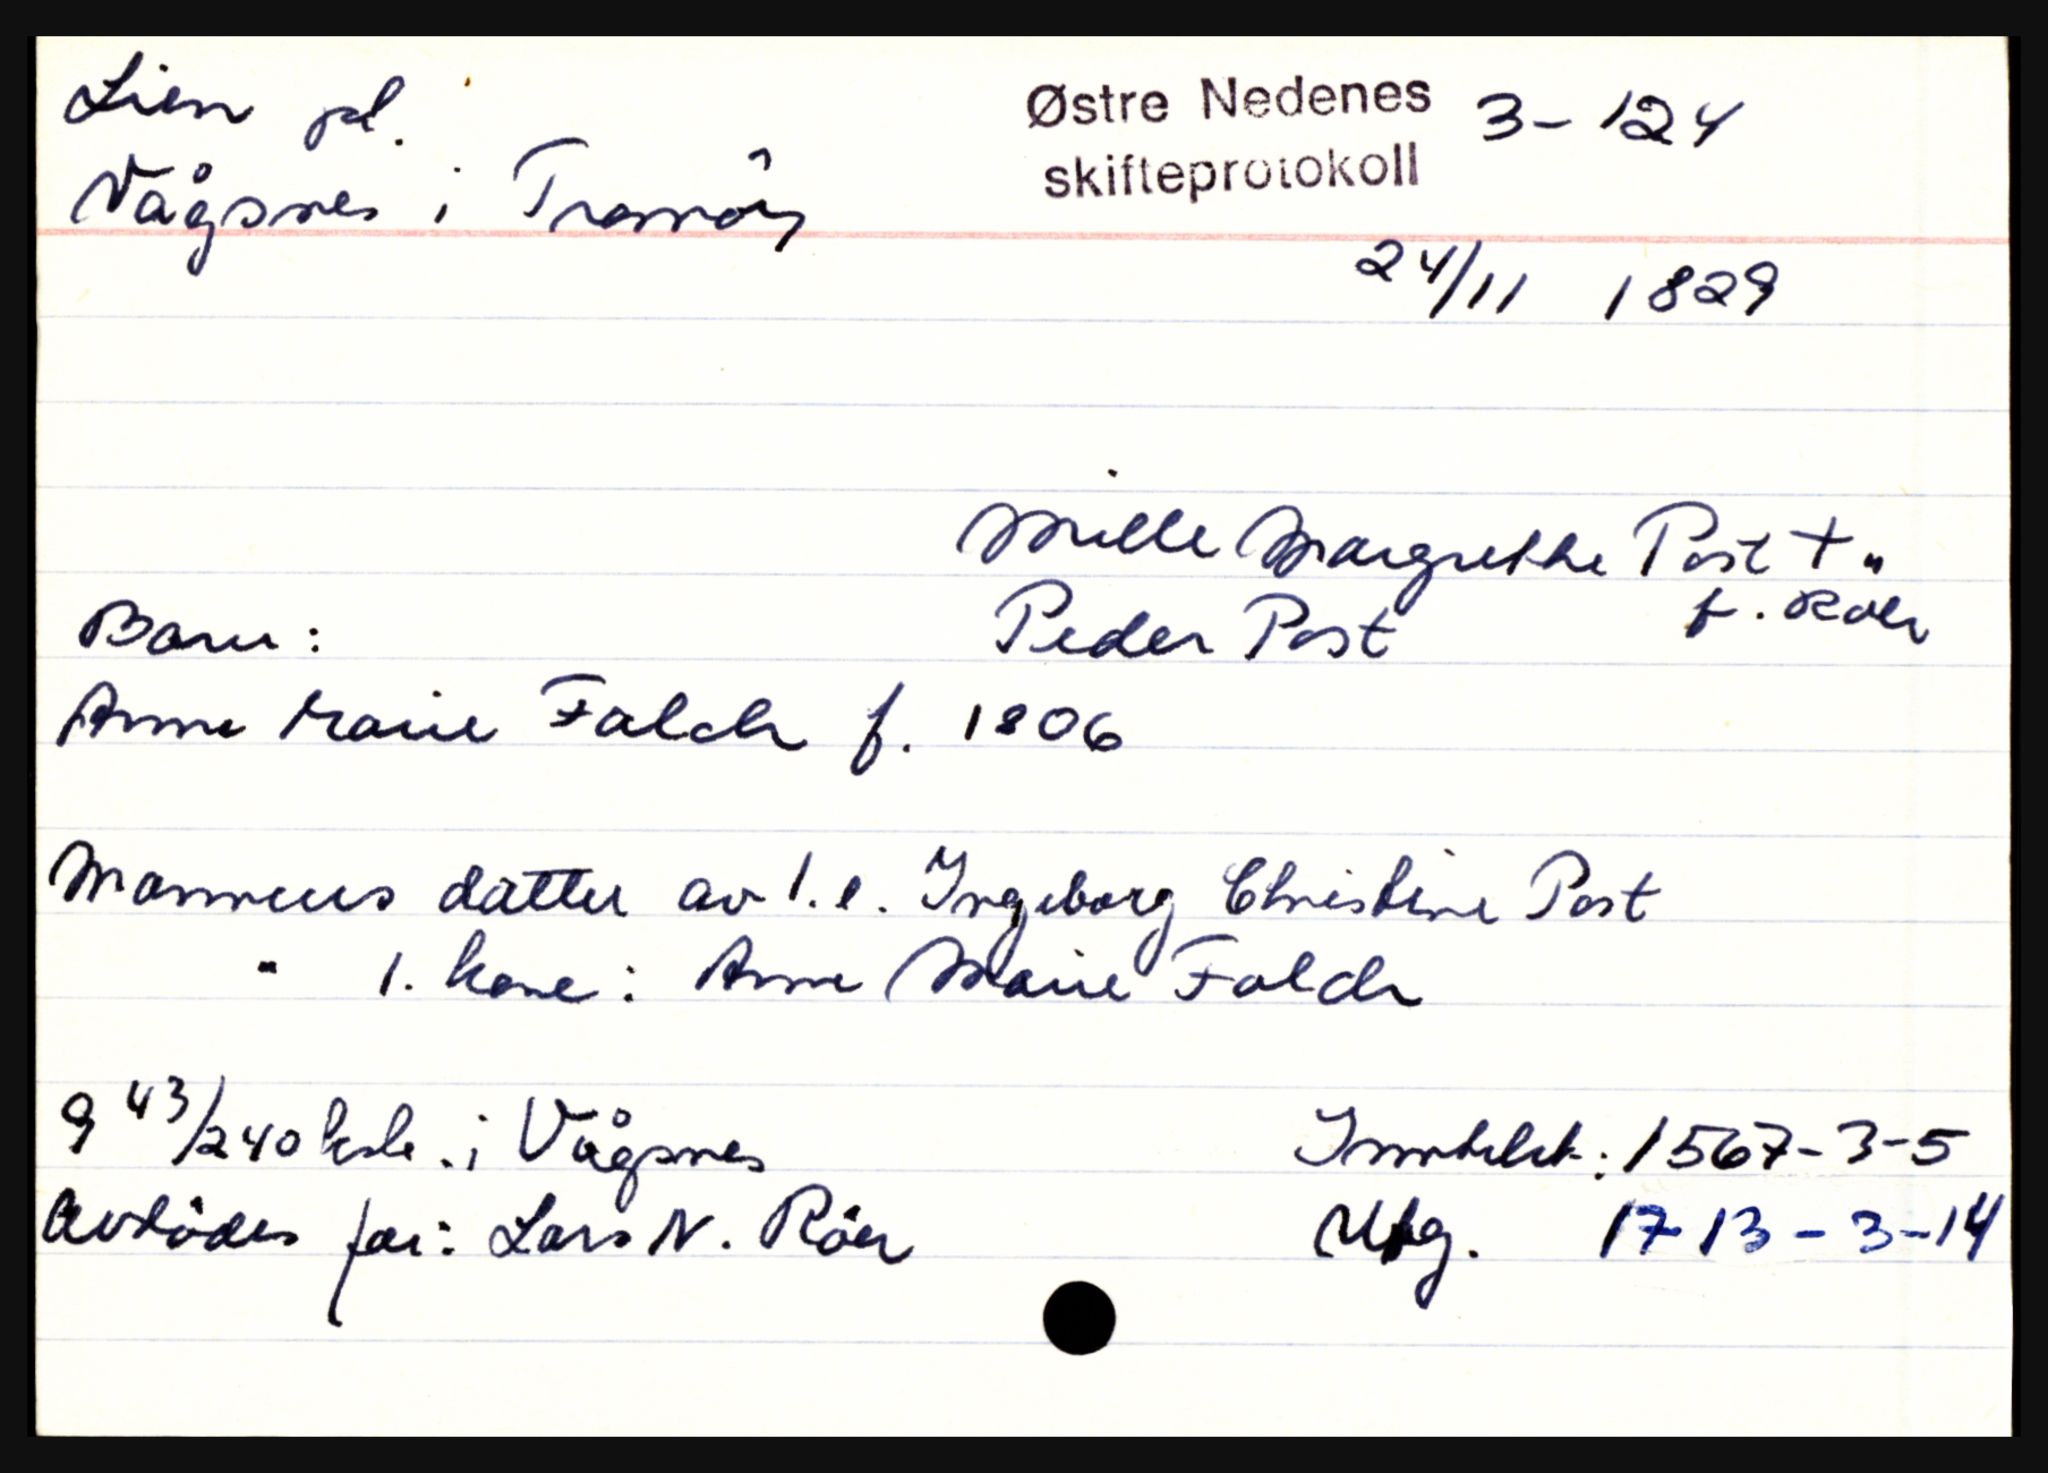 Lien pl.
Østre Nedenes 3-124
Vågsnes i Tromöy
skifteprotokoll
24/11 1829
Mille Margrethe Post + "
Barn:
Peder Post f. Röer
Anne Marie Falch f. 1806
Mannens datter av 1. e. Ingeborg Christine Post
" 1. kone: Anne Marie Falch
9 43/240 ksle. i Vågsnes
Inntekt: 1567-3-5
Avdödes far: Lars N. Röer
Utg. 1713-3-14